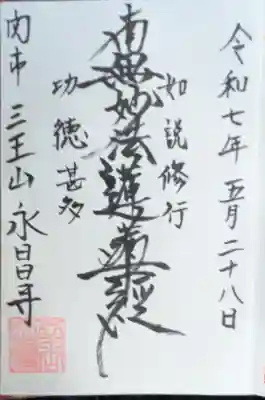 令和七年 五月二十八日
如説修行
南無妙法蓮華経
功徳甚多
関市 三王山 永昌寺